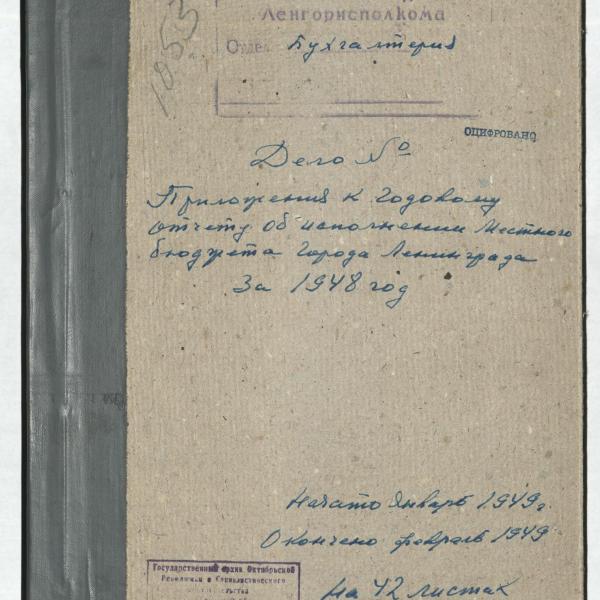 1053
Ленгорисполкома
Отдел Бухгалтерия
ОЦИФРОВАНО
Дело №
Приложения к годовому
отчету об исполнении местного
бюджета города Ленинграда
За 1948 год
Начато январь 1949 г.
Окончено февраль 1949
На 42 листах
Государственный архив Октябрьской
Революции и Социалистического